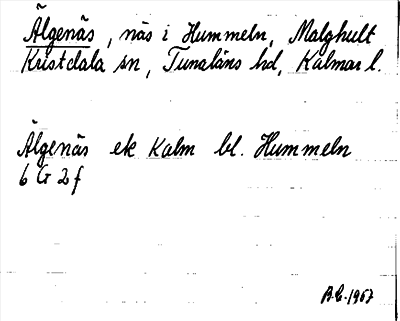 Älgenäs, näs i Hummeln, Målghult
Kristdala sn, Tunaläns hd, Kalmar l.
Älgenäs ek Kalm bl. Hummeln
6 G 2 f
1967